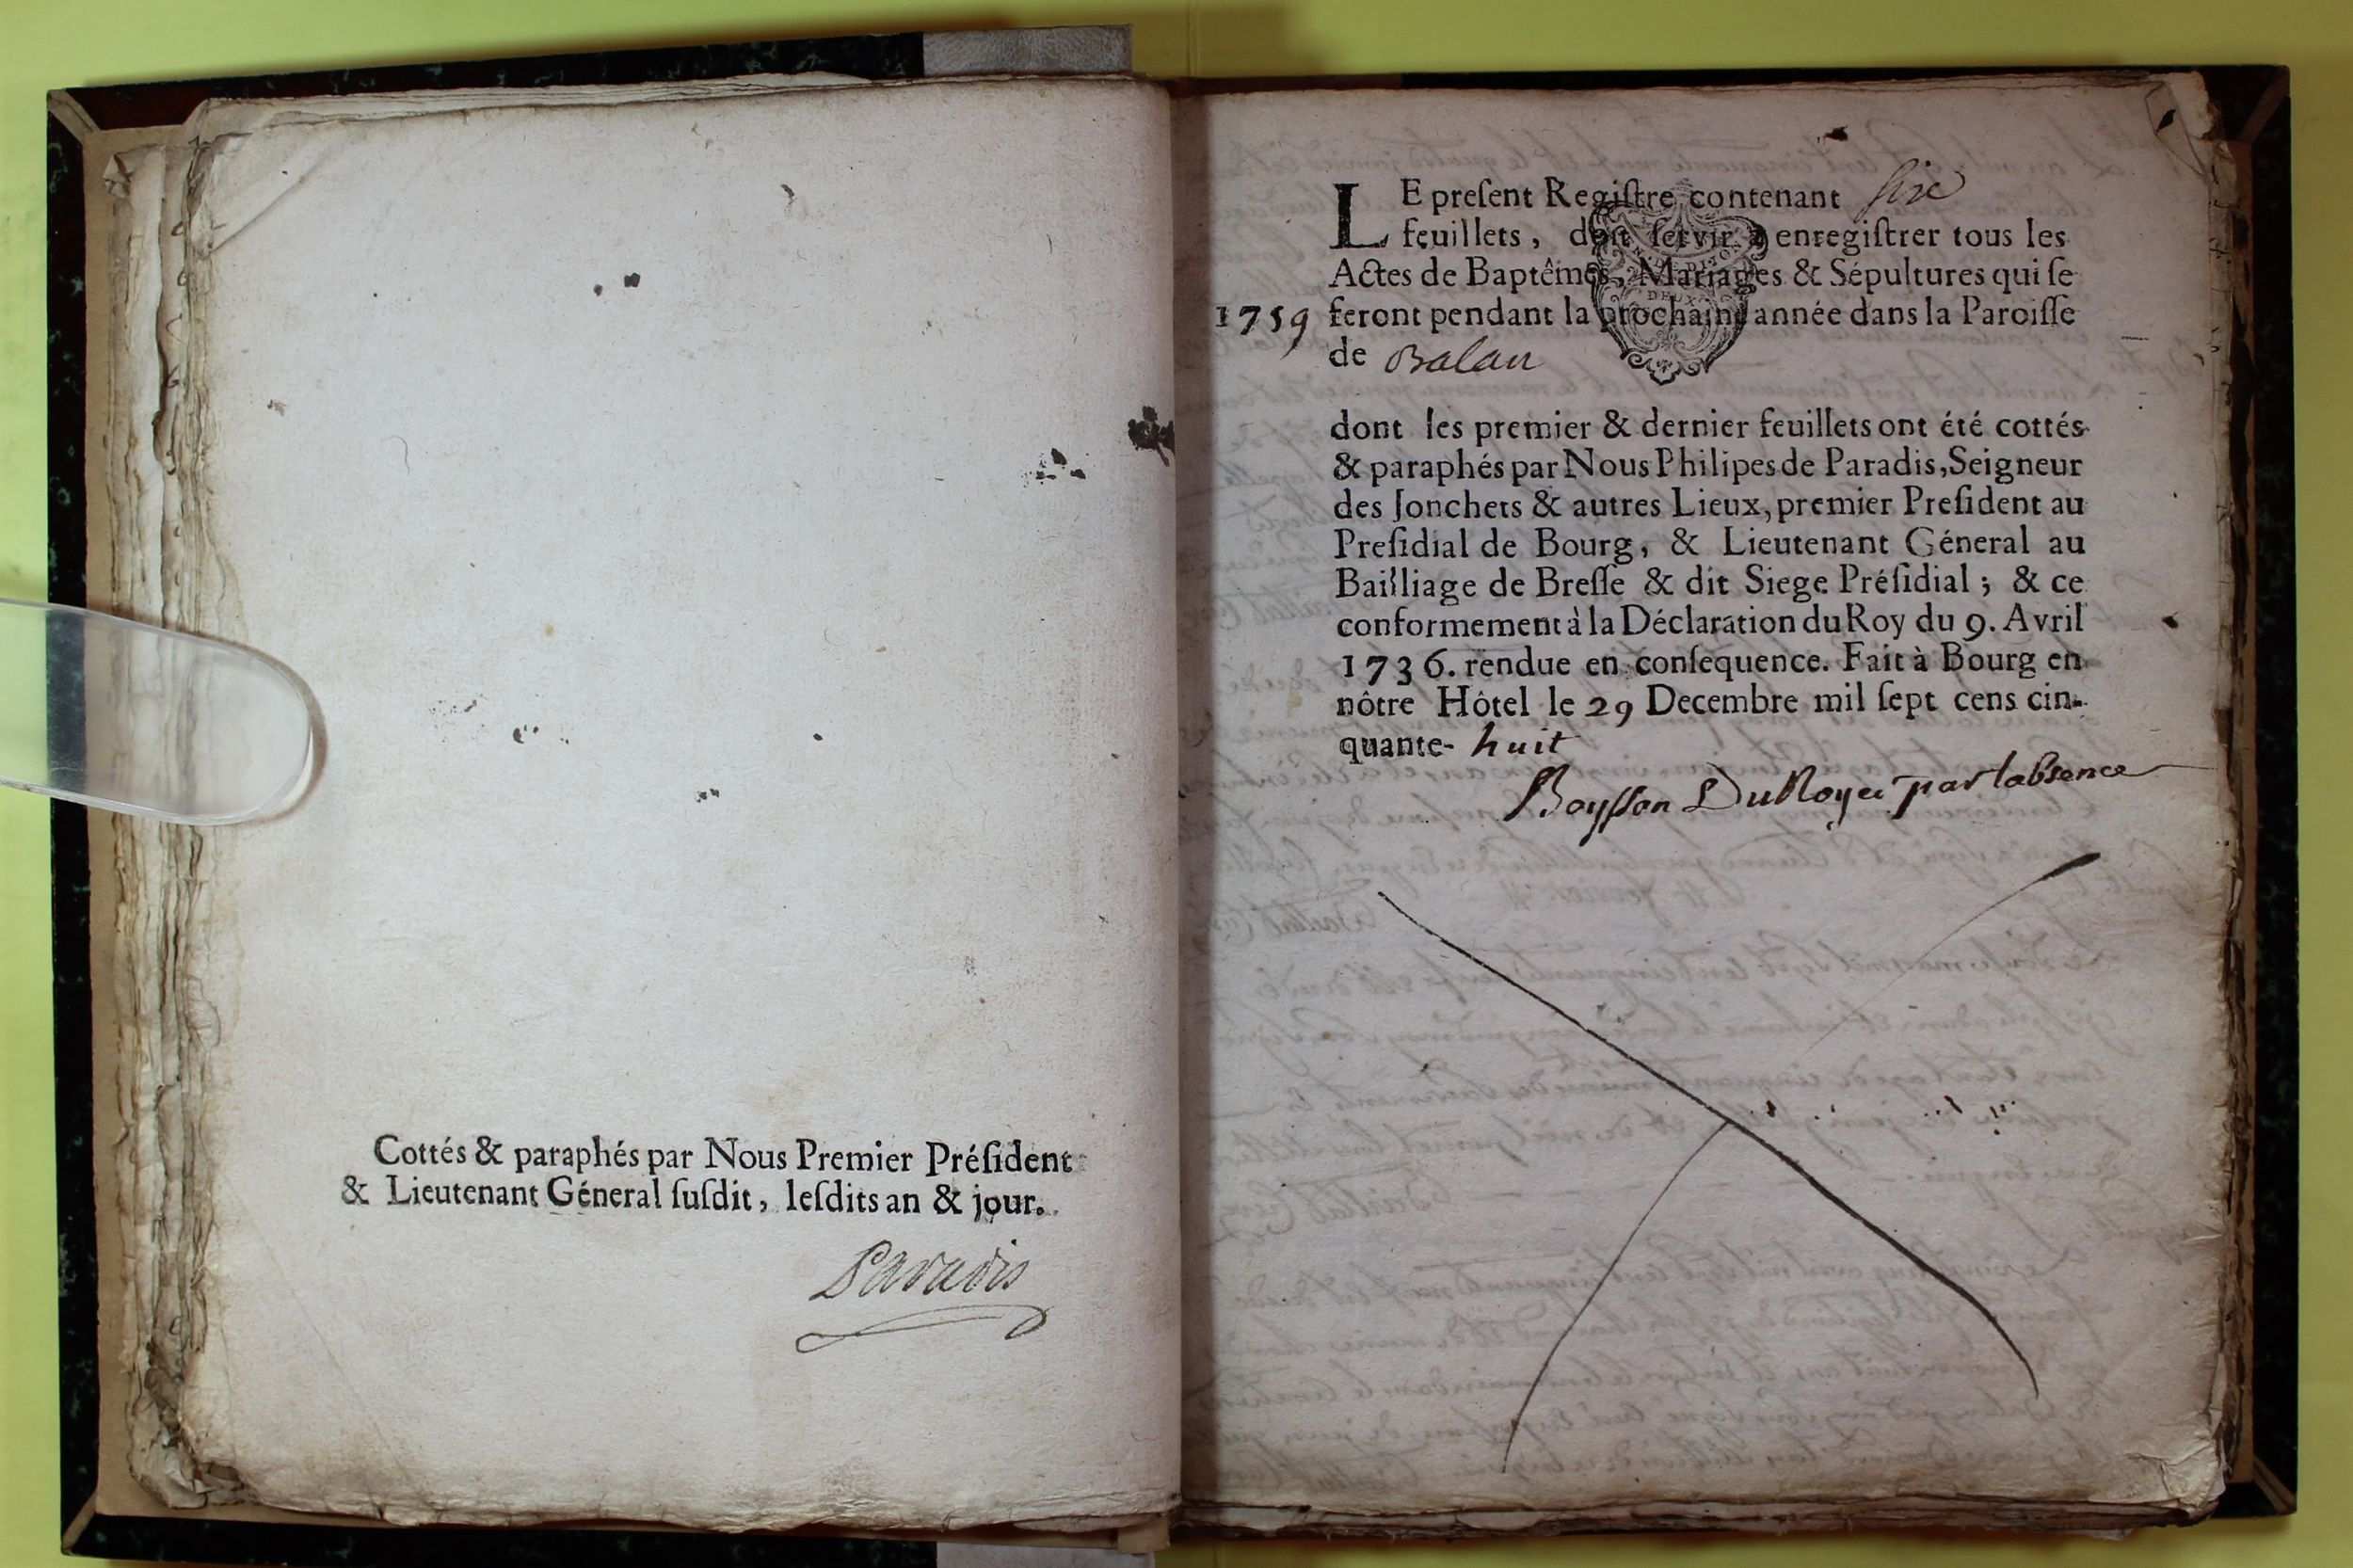 Cottés & paraphés par Nous Premier Préſident
& Lieutenant Géneral ſuſdit, leſdits an & jour.
Paradis
LE preſent Regiſtre contenant six
feuillets, doit ſervir à enregiſtrer tous les
Actes de Baptêmes, Mariages & Sépultures qui ſe
1759 feront pendant la prochaine année dans la Paroiſſe
de Balan
dont les premier & dernier feuillets ont été cottés
& paraphés par Nous Philipes de Paradis, Seigneur
des Jonchets & autres Lieux, premier Preſident au
Preſidial de Bourg, & Lieutenant Géneral au
Bailliage de Breſſe & dit Siege Préſidial ; & ce
conformement à la Déclaration du Roy du 9. Avril
1736. rendue en conſequence. Fait à Bourg en
nôtre Hôtel le 29 Decembre mil ſept cens cin-
quante- huit
Boysson DuRoyer par labsence